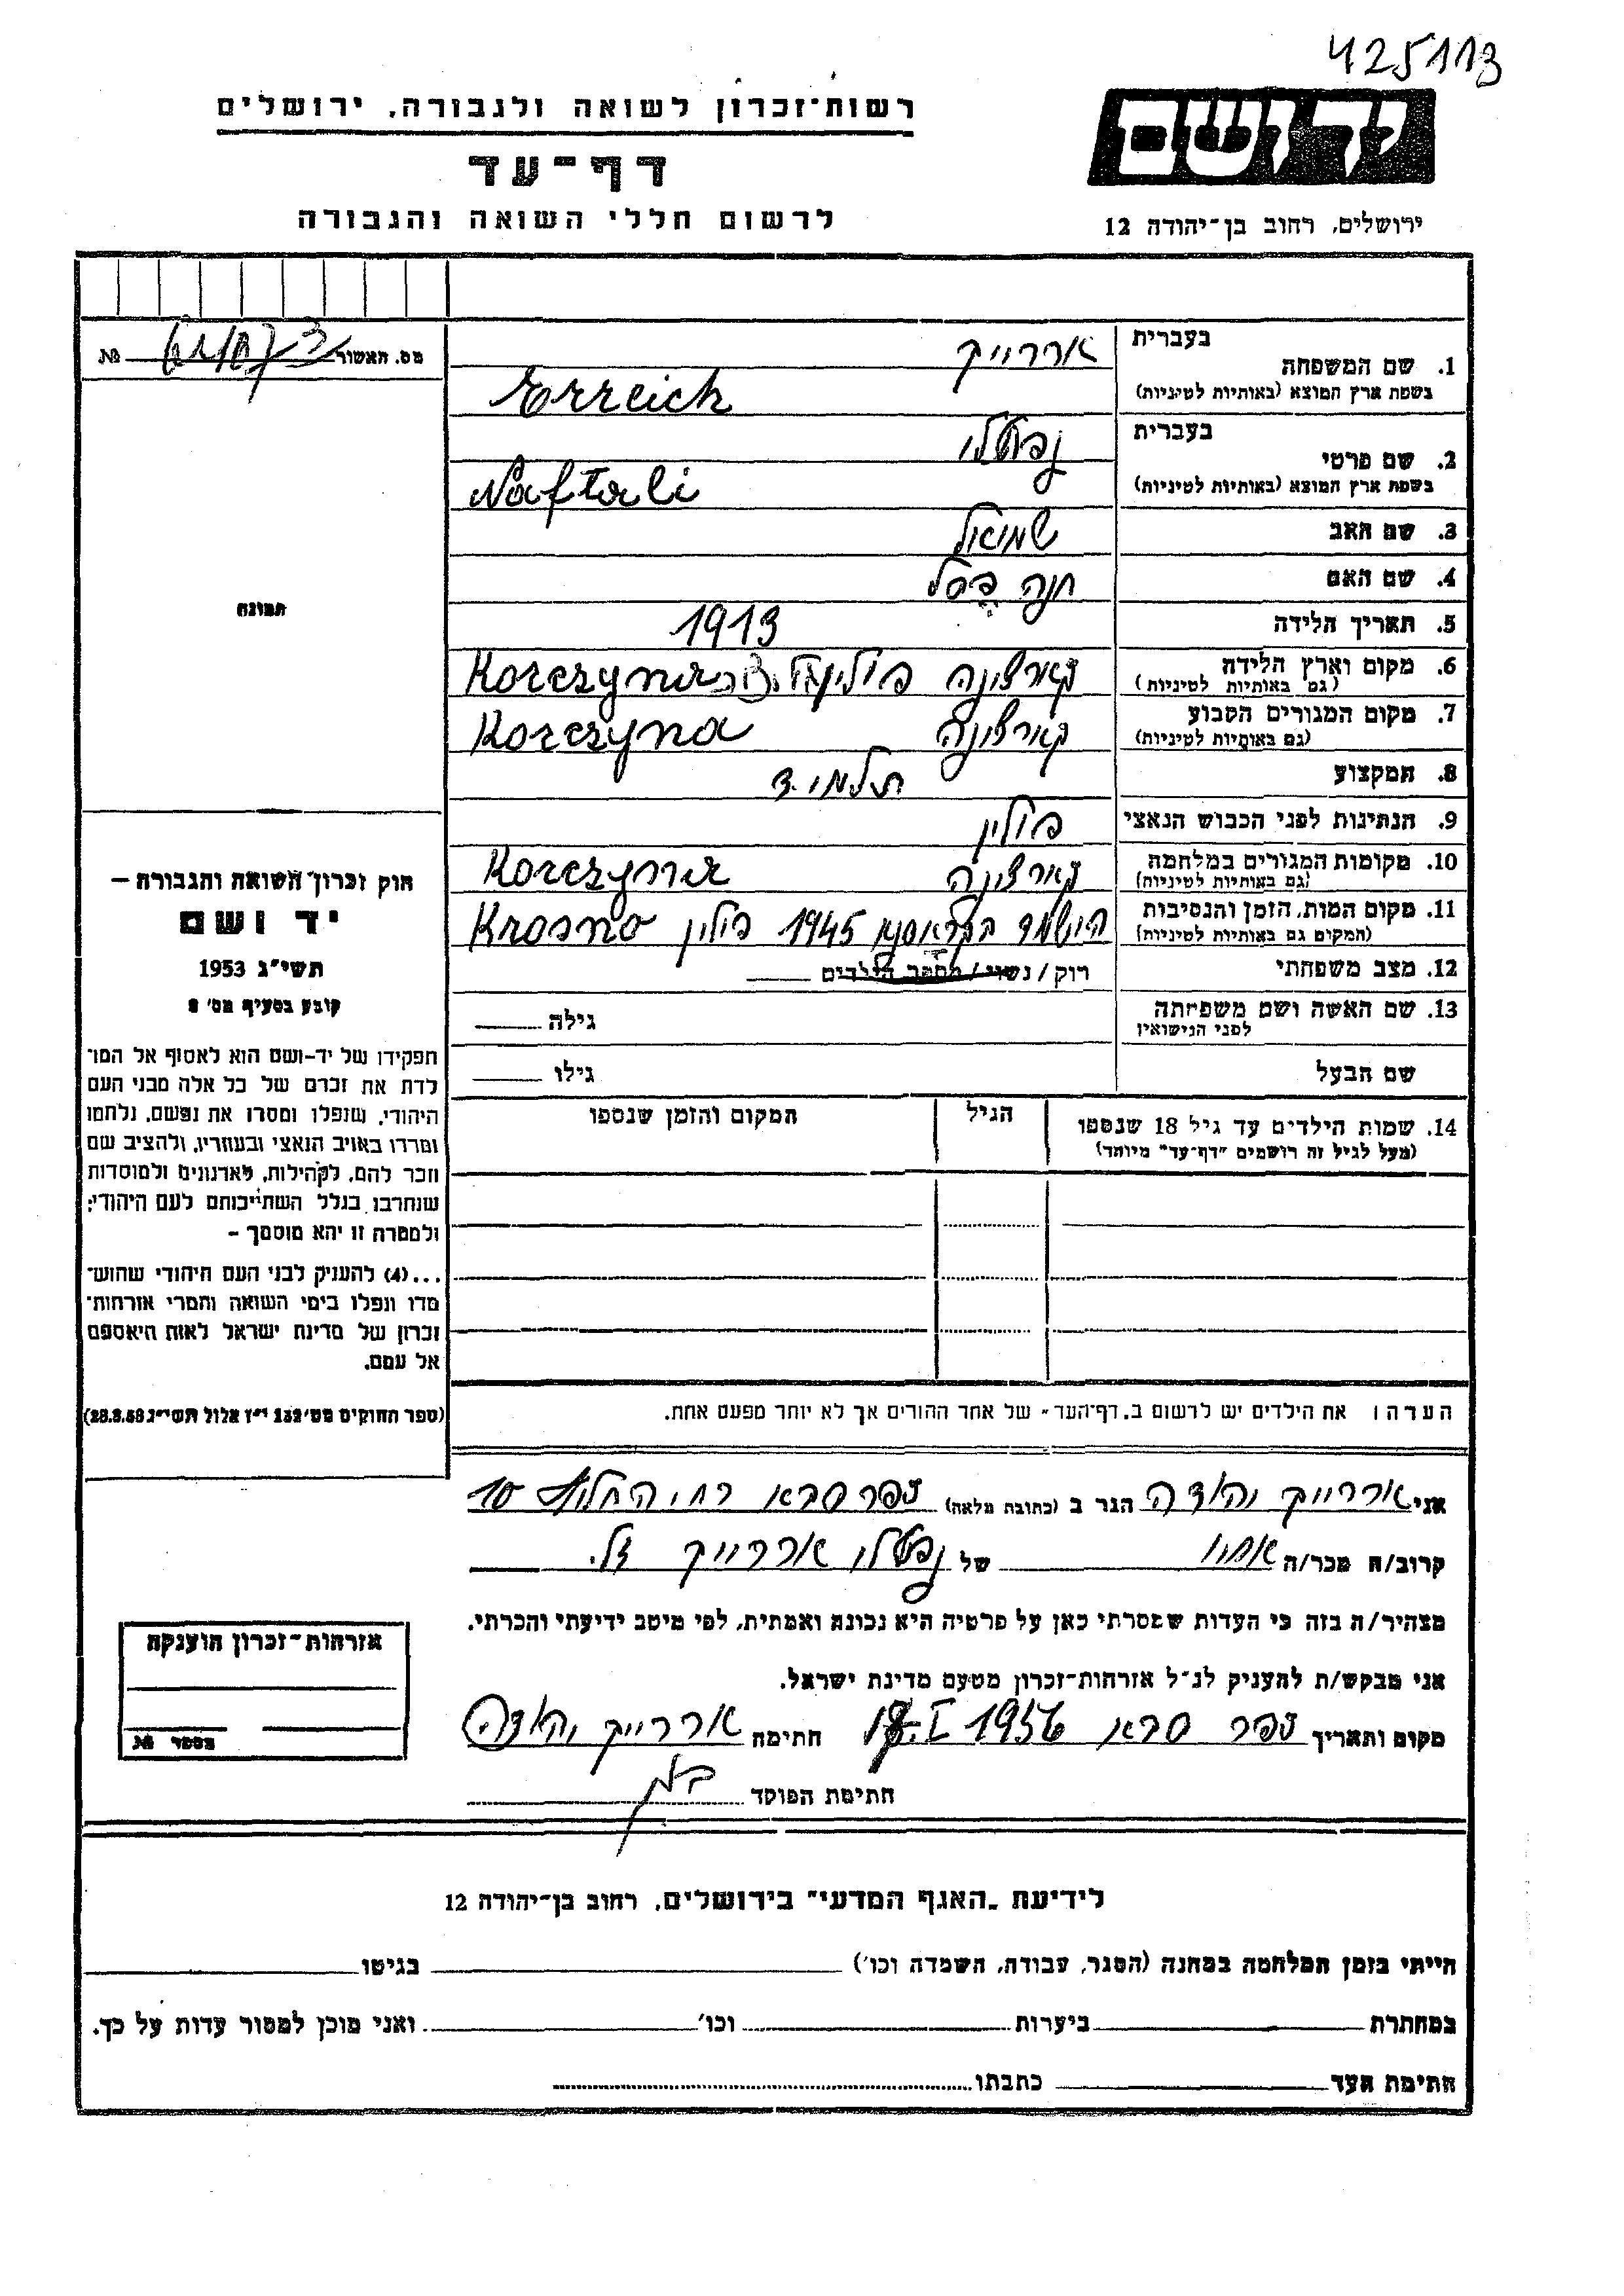 425113
רשות־זכרון לשואה ולגבורה, ירושלים
דף־עד
לרשום חללי השואה והגבורה
יד ושם
ירושלים, רחוב בן־יהודה 12
מס. האשור №
בעברית
1. שם המשפחה
בשפת ארץ המוצא (באותיות לטיניות)
אררייך
Erreich
בעברית
2. שם פרטי
בשפת ארץ המוצא (באותיות לטיניות)
נפטלי
Naftali
3. שם האב שמואל
4. שם האם חנה פסל
5. תאריך הלידה 1913
6. מקום וארץ הלידה קארצ'ינה פולין Korczyna
(גם באותיות לטיניות)
7. מקום המגורים הקבוע קארצ'ינה Korczyna
(גם באותיות לטיניות)
8. המקצוע תלמיד
9. הנתינות לפני הכבוש הנאצי פולין
10. מקומות המגורים במלחמה קארצ'ינה Korczyna
(גם באותיות לטיניות)
11. מקום המות, הזמן והנסיבות הושמד בקראסנא 1945 פולין Krosno
(המקום גם באותיות לטיניות)
12. מצב משפחתי רוק / נשוי / מספר הילדים
13. שם האשה ושם משפחתה גילה
לפני הנישואין
שם הבעל גילו
14. שמות הילדים עד גיל 18 שנספו הגיל המקום והזמן שנספו
(מעל לגיל זה רושמים "דף־עד" מיוחד)
הערה: את הילדים יש לרשום ב„דף־העד" של אחד ההורים אך לא יותר מפעם אחת.
תמונה
חוק זכרון השואה והגבורה —
יד ושם
תשי"ג 1953
קובע בסעיף מס' 2
תפקידו של יד-ושם הוא לאסוף אל המו־
לדת את זכרם של כל אלה מבני העם
היהודי, שנפלו ומסרו את נפשם, נלחמו
ומרדו באויב הנאצי ובעוזריו, ולהציב שם
וזכר להם, לקהילות, לארגונים ולמוסדות
שנחרבו בגלל השתייכותם לעם היהודי;
ולמטרה זו יהא מוסמך —
...(4) להעניק לבני העם היהודי שהוש־
מדו ונפלו בימי השואה והמרי אזרחות־
זכרון של מדינת ישראל לאות היאספם
אל עמם.
(ספר החוקים מס' 132 י"ז אלול תשי"ג 28.8.53)
אני אררייך יהודה הגר ב (כתובת מלאה) כפר סבא רח' החלוץ 10
קרוב/ה מכר/ה אחיו של נפטלי אררייך ז"ל
מצהיר/ה בזה כי העדות שמסרתי כאן על פרטיה היא נכונה ואמתית, לפי מיטב ידיעתי והכרתי.
אני מבקש/ת להעניק לנ"ל אזרחות־זכרון מטעם מדינת ישראל.
מקום ותאריך כפר סבא I 1956 חתימה אררייך יהודה
חתימת הפוקד
אזרחות־זכרון הוענקה
מספר №
לידיעת „האגף המדעי" בירושלים, רחוב בן־יהודה 12
הייתי בזמן המלחמה במחנה (הסגר, עבודה, השמדה וכו') בגיטו
במחתרת ביערות וכו' ואני מוכן למסור עדות על כך.
חתימת העד כתבתו